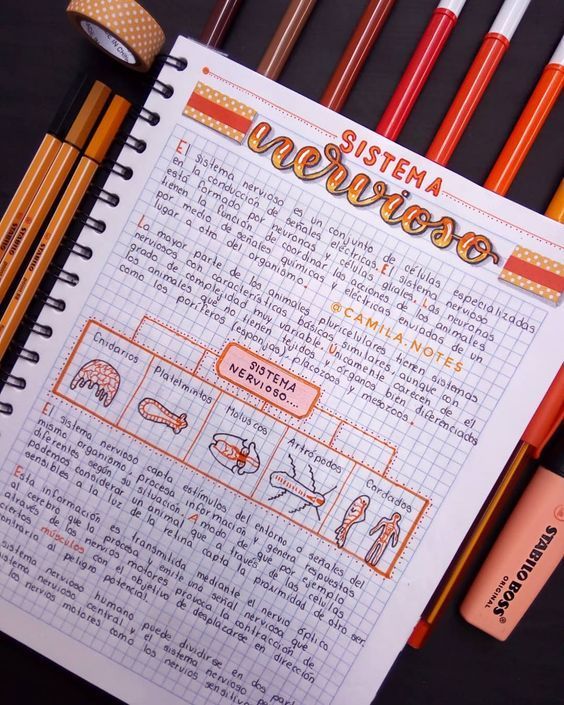 SISTEMA
nervioso
El sistema nervioso es un conjunto de células especializadas
en la conducción de señales eléctricas. El sistema nervioso
está formado por neuronas y células gliales. Las neuronas
tienen la función de coordinar las acciones de los animales
por medio de señales químicas y eléctricas enviadas de un
lugar a otro del organismo.
@CAMILA.NOTES
La mayor parte de los animales pluricelulares tienen sistemas
nerviosos con características básicas similares, aunque con
grado de complejidad muy variable. Únicamente carecen de él
los animales que no tienen tejidos y órganos bien diferenciados
como los poríferos (esponjas), placozoos y mesozoos.
SISTEMA
NERVIOSO
Cnidarios
Platelmintos
Moluscos
Artrópodos
Cordados
El sistema nervioso capta estímulos del entorno o señales del
mismo organismo, procesa información y genera respuestas
diferentes según su situación. A modo de ejemplo
podemos considerar un animal que a través de las células
sensibles a la luz de la retina capta la proximidad de otro ser.
Esta información es transmitida mediante el nervio óptico
al cerebro que la procesa y emite una señal nerviosa que
através de los nervios motores provoca la contracción de
ciertos músculos con el objetivo de desplazarse en dirección
contraria al peligro potencial.
sistema nervioso humano puede dividirse en dos part
sistema nervioso central y el sistema nervioso pe
los nervios motores como los nervios sensitiv
STABILO BOSS
ORIGINAL